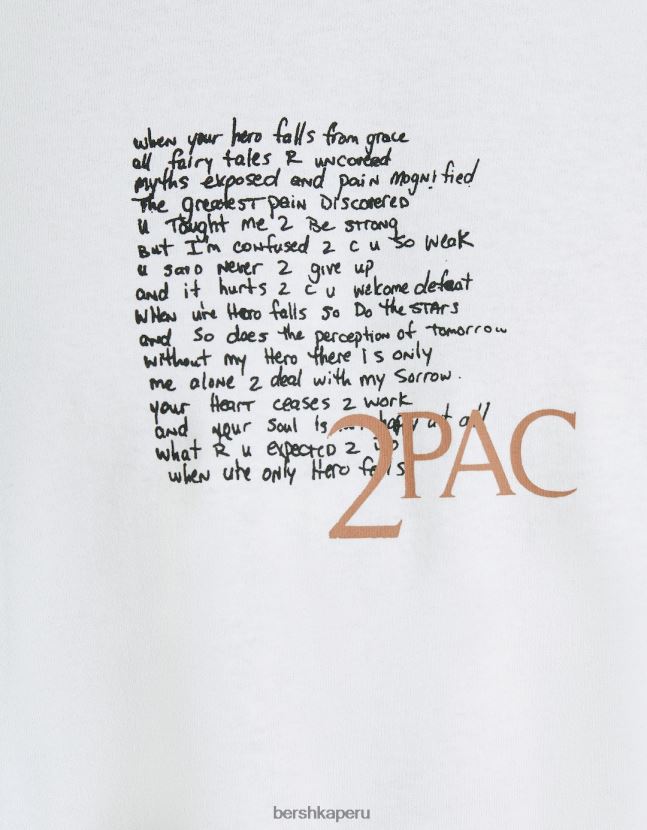 when your hero falls from grace
all fairy tales R uncovered
myths exposed and pain magnified
The greatest pain Discovered
u Taught me 2 Be strong
But I'm confused 2 c u so weak
u said never 2 give up
and it hurts 2 c u welcome defeat
when ure Hero falls so Do the STARS
and so does the perception of tomorrow
without my Hero there is only
me alone 2 deal with my Sorrow.
your Heart ceases 2 work
and your soul is happy at all
what R u expected 2
when ure only Hero falls
2PAC
bershkaperu